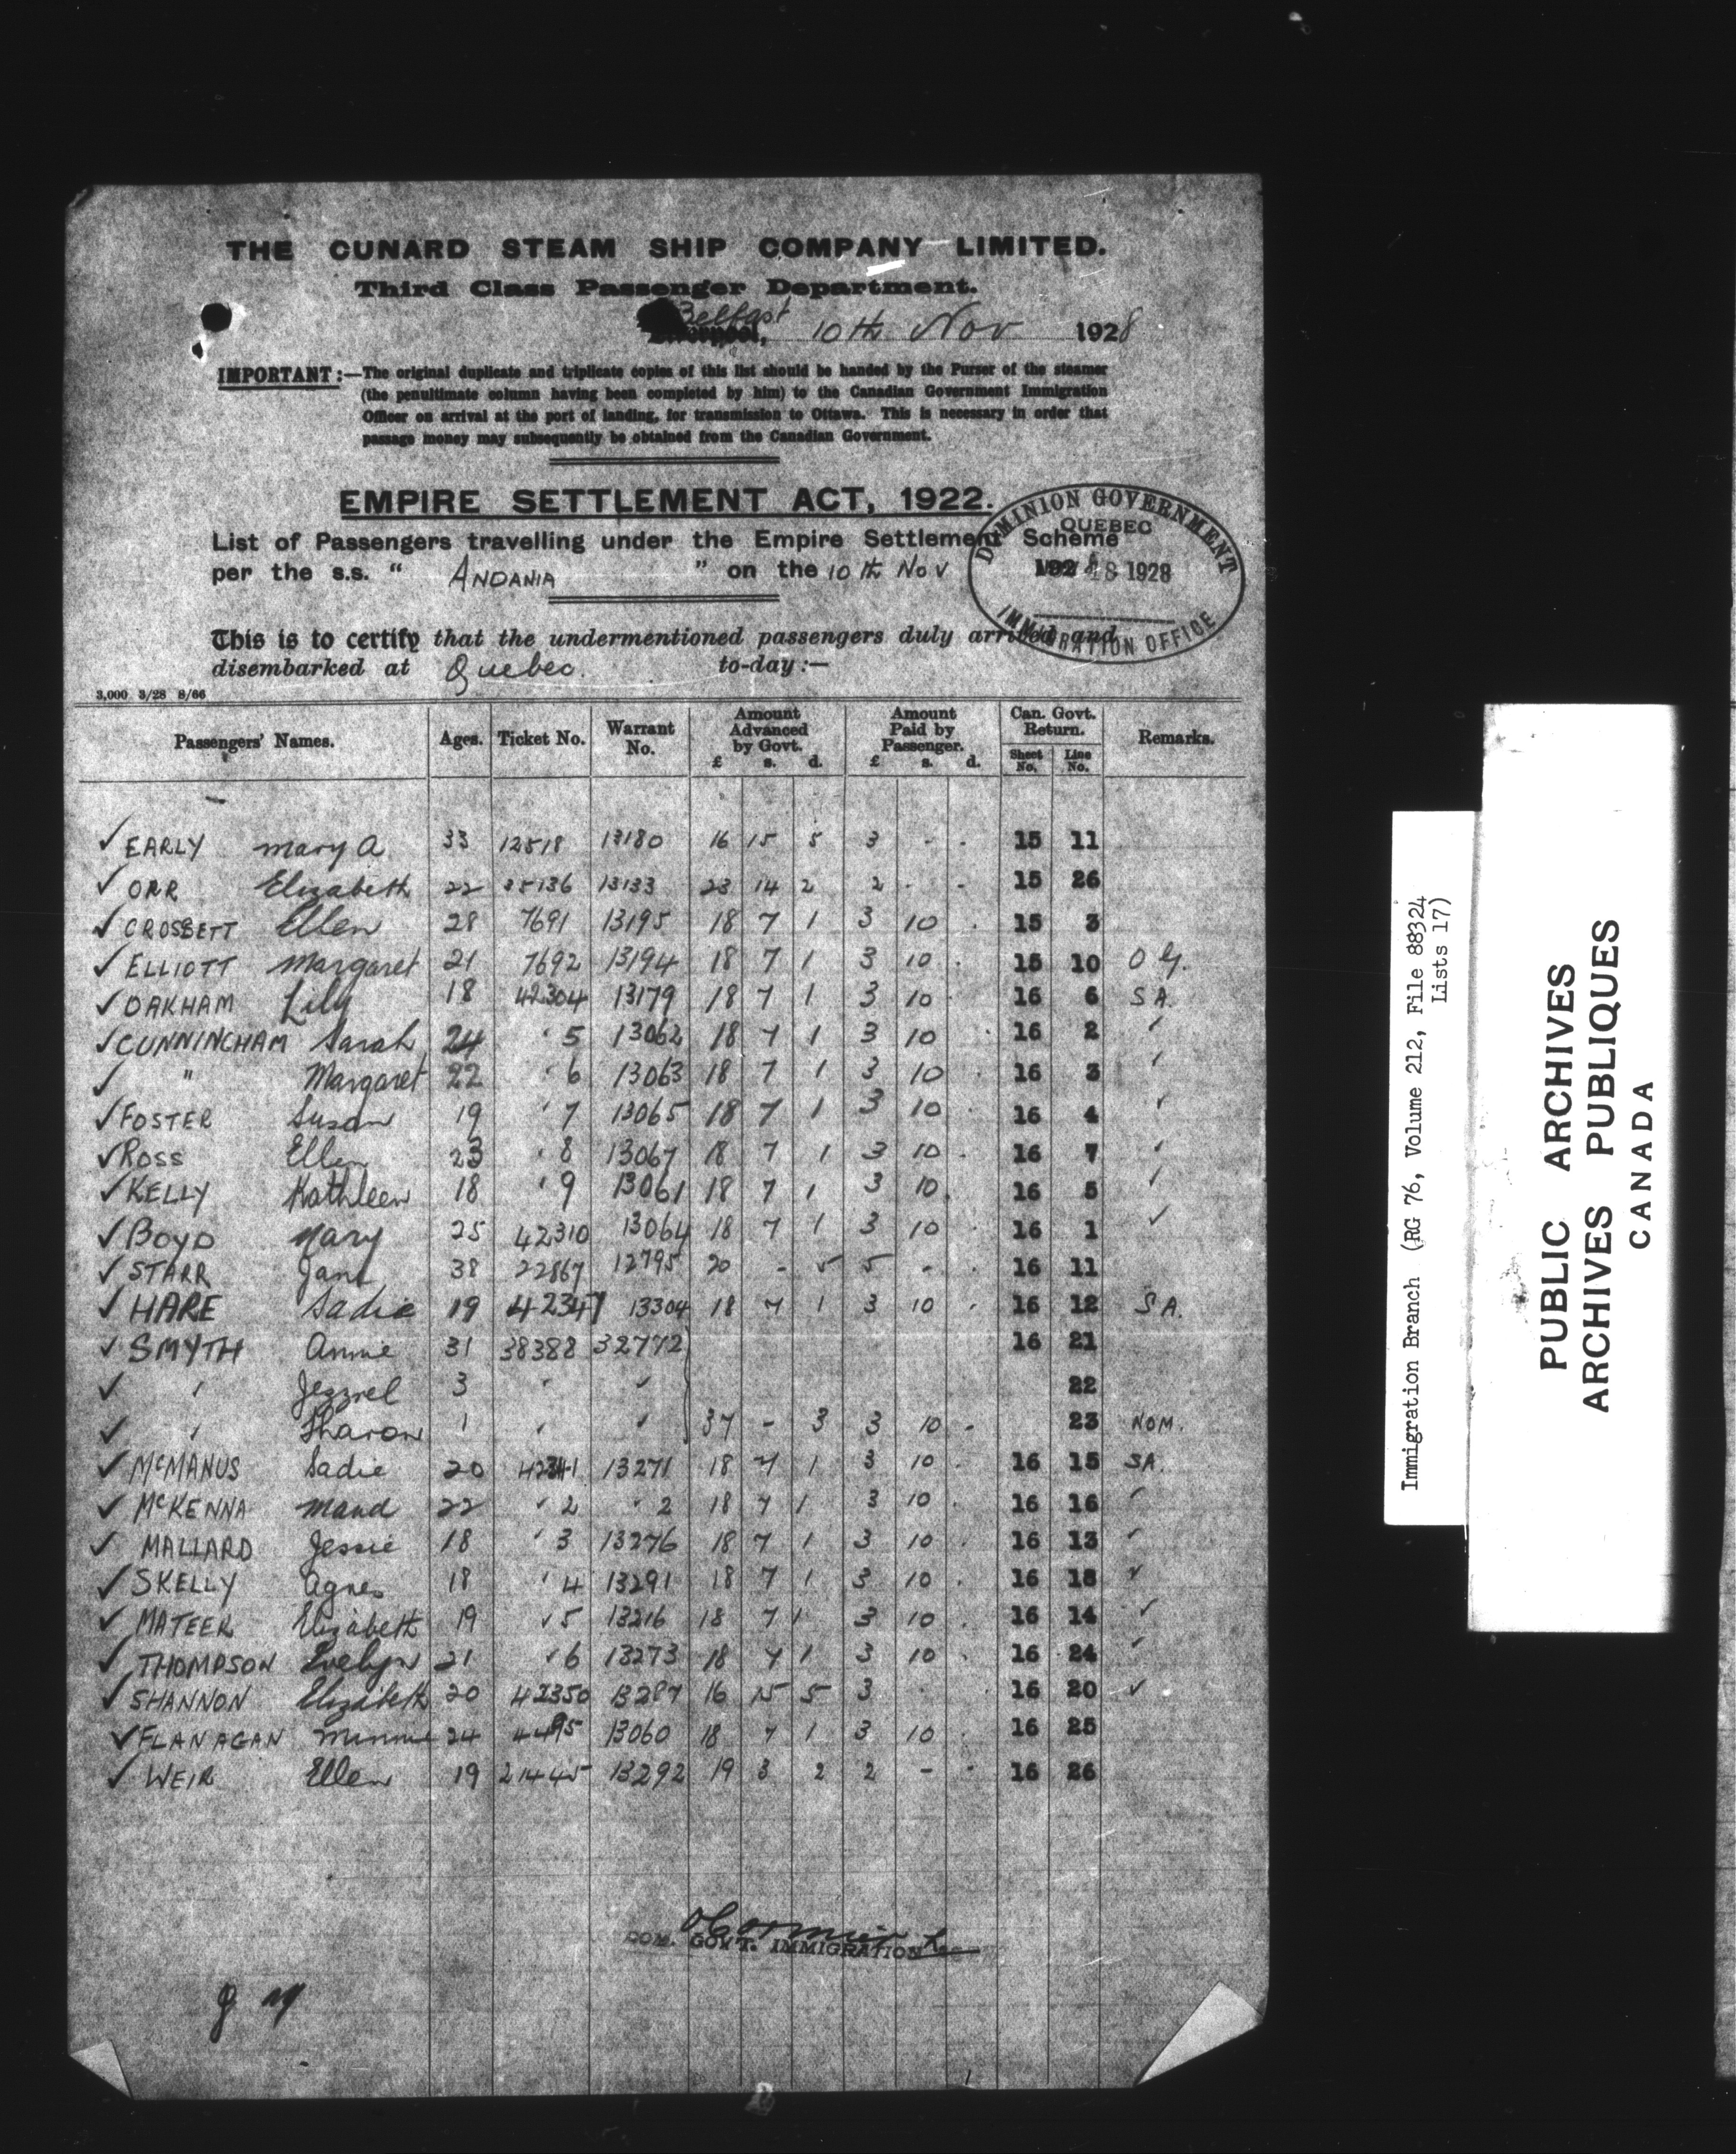 THE CUNARD STEAM SHIP COMPANY LIMITED.
Third Class Passenger Department.
Belfast
10th Nov 1928
IMPORTANT:—The original duplicate and triplicate copies of this list should be handed by the Purser of the steamer
(the penultimate column having been completed by him) to the Canadian Government Immigration
Officer on arrival at the port of landing, for transmission to Ottawa. This is necessary in order that
passage money may subsequently be obtained from the Canadian Government.
EMPIRE SETTLEMENT ACT, 1922.
List of Passengers travelling under the Empire Settlement Scheme
per the s.s. " ANDANIA " on the 10th Nov 192
DOMINION GOVERNMENT
QUEBEC
18 1928
IMMIGRATION OFFICE
This is to certify that the undermentioned passengers duly arrived and
disembarked at Quebec. to-day:—
3,000 3/28 8/66
Passengers' Names. Ages. Ticket No. Warrant No. Amount Advanced by Govt. £ s. d. Amount Paid by Passenger. £ s. d. Can. Govt. Return. Sheet No. Line No. Remarks.
✓ EARLY Mary A 33 12518 13180 16 15 5 3 - - 15 11
✓ ORR Elizabeth 22 25136 13133 23 14 2 2 - - 15 26
✓ CROSSETT Ellen 28 7691 13195 18 7 1 3 10 . 15 3
✓ ELLIOTT Margaret 21 7692 13194 18 7 1 3 10 . 15 10 O G.
✓ OAKHAM Lily 18 42304 13179 18 7 1 3 10 . 16 6 S A.
✓ CUNNINGHAM Sarah 24 " 5 13062 18 7 1 3 10 . 16 2 "
✓ " Margaret 22 " 6 13063 18 7 1 3 10 . 16 3 "
✓ FOSTER Susan 19 " 7 13065 18 7 1 3 10 . 16 4 "
✓ ROSS Ellen 23 " 8 13067 18 7 1 3 10 . 16 7 "
✓ KELLY Kathleen 18 " 9 13061 18 7 1 3 10 . 16 5 "
✓ BOYD Mary 25 42310 13064 18 7 1 3 10 . 16 1 "
✓ STARR Jane 38 22867 12795 20 - 5 5 - . 16 11
✓ HARE Sadie 19 42347 13304 18 7 1 3 10 . 16 12 S A.
✓ SMYTH Annie 31 38388 32772 16 21
✓ " Jezzrel 3 " " 22
✓ " Sharon 1 " " 37 - 3 3 10 - 23 NOM.
✓ McMANUS Sadie 20 42341 13271 18 7 1 3 10 . 16 15 SA.
✓ McKENNA Maud 22 " 2 " 2 18 7 1 3 10 . 16 16 "
✓ MALLARD Jessie 18 " 3 13276 18 7 1 3 10 . 16 13 "
✓ SKELLY Agnes 18 " 4 13291 18 7 1 3 10 . 16 18 "
✓ MATEER Elizabeth 19 " 5 13216 18 7 1 3 10 . 16 14 "
✓ THOMPSON Evelyn 21 " 6 13273 18 7 1 3 10 . 16 24 "
✓ SHANNON Elizabeth 20 42350 13287 16 15 5 3 . . 16 20 "
✓ FLANAGAN Minnie 24 4495 13060 18 7 1 3 10 . 16 25
✓ WEIR Ellen 19 21445 13292 19 3 2 2 - . 16 26
DOM. GOVT. IMMIGRATION
Immigration Branch (RG 76, Volume 212, File 88324
Lists 17)
PUBLIC ARCHIVES
ARCHIVES PUBLIQUES
CANADA